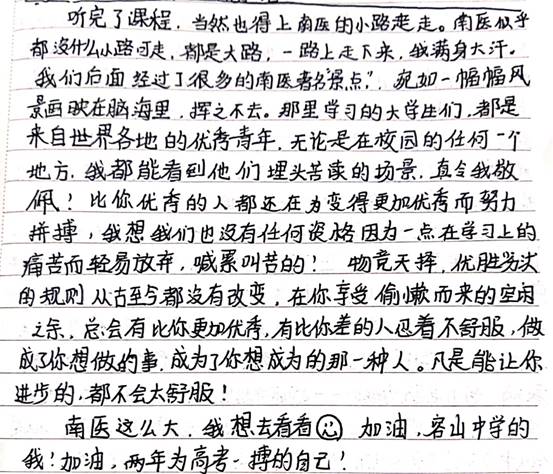 听完了课程，当然也得上南医的小路走走。南医似乎
都没什么小路可走，都是大路，一路上走下来，我满身大汗。
我们后面经过了很多的南医著名“景点”，宛如一幅幅风
景画映在脑海里，挥之不去。那里学习的大学生们，都是
来自世界各地的优秀青年，无论是在校园的任何一个
地方，我都能看到他们埋头苦读的场景，真令我敬
佩！比你优秀的人都还在为变得更加优秀而努力
拼搏，我想我们也没有任何资格因为一点在学习上的
痛苦而轻易放弃，喊累叫苦的！物竞天择，优胜劣汰
的规则从古至今都没有改变，在你享受偷懒而来的空闲
之余，总会有比你更加优秀，有比你差的人忍着不舒服，做
成了你想做的事，成为了你想成为的那一种人。凡是能让你
进步的，都不会太舒服！
南医这么大，我想去看看☺加油，容山中学的
我！加油，两年为高考一搏的自己！